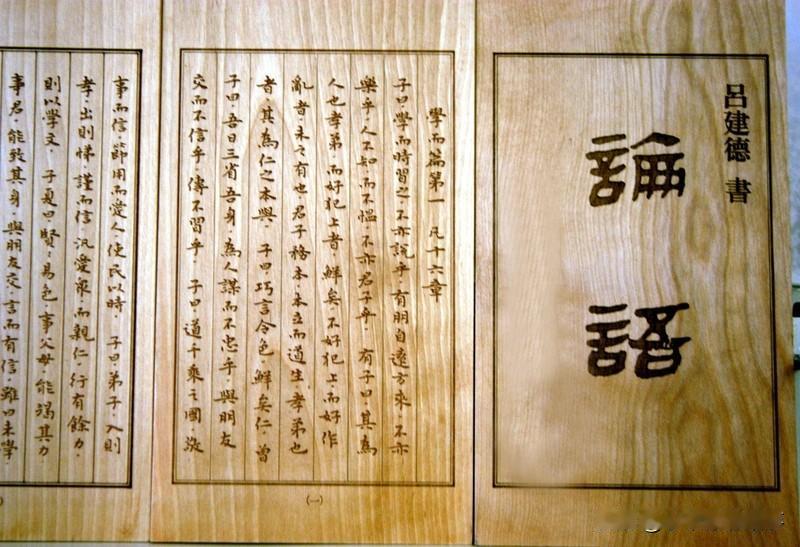 呂建德 書
論語
學而篇第一 凡十六章
子曰.學而時習之.不亦說乎.有朋自遠方來.不亦
樂乎.人不知.而不慍.不亦君子乎. 有子曰.其為
人也孝弟.而好犯上者.鮮矣.不好犯上.而好作
亂者.未之有也.君子務本.本立而道生.孝弟也
者.其為仁之本與. 子曰.巧言令色.鮮矣仁. 曾
子曰.吾日三省吾身.為人謀而不忠乎.與朋友
交而不信乎.傳不習乎. 子曰.道千乘之國.敬
(一)
事而信.節用而愛人.使民以時. 子曰.弟子.入則
孝.出則悌.謹而信.汎愛眾.而親仁.行有餘力.
則以學文. 子夏曰.賢々易色.事父母.能竭其力.
事君.能致其身.與朋友交.言而有信.雖曰未學.